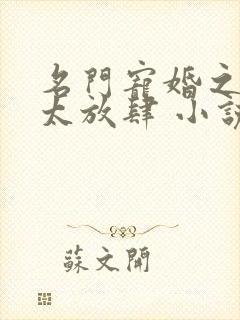 名門寵婚之
太放肆 小説
蘇文開